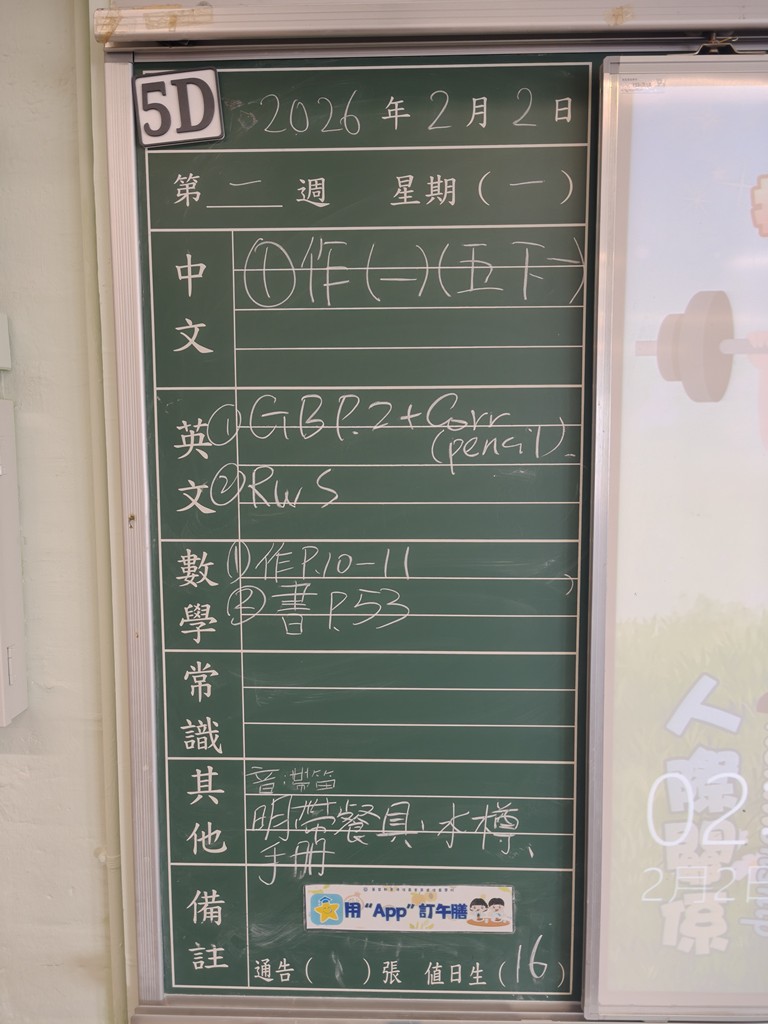 5D
2026年2月2日
第一週 星期(一)
中文
①作(一)(五下一)
英文
①GB P.2+Corr
(pencil)
②RWS
數學
①作P.10-11
②書P.53
常識
其他
音:帶笛
明帶餐具、水樽、
手冊
備註
用“App”訂午膳
通告( )張 值日生(16)
人際關係
02
2月2日